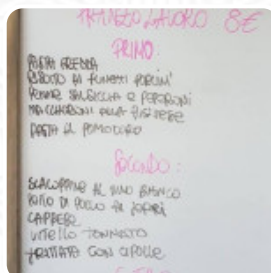 PRANZO LAVORO 8€
PRIMO:
PASTA FREDDA
RISOTTO AI FUNGHI PORCINI
PENNE SALSICCIA E PEPERONI
MACCHERONI ALLA
PASTA AL POMODORO
SECONDO:
SCALOPPINE AL VINO BIANCO
DI POLLO AI
CAPRESE
VITELLO TONNATO
FRITTATA CON CIPOLLE